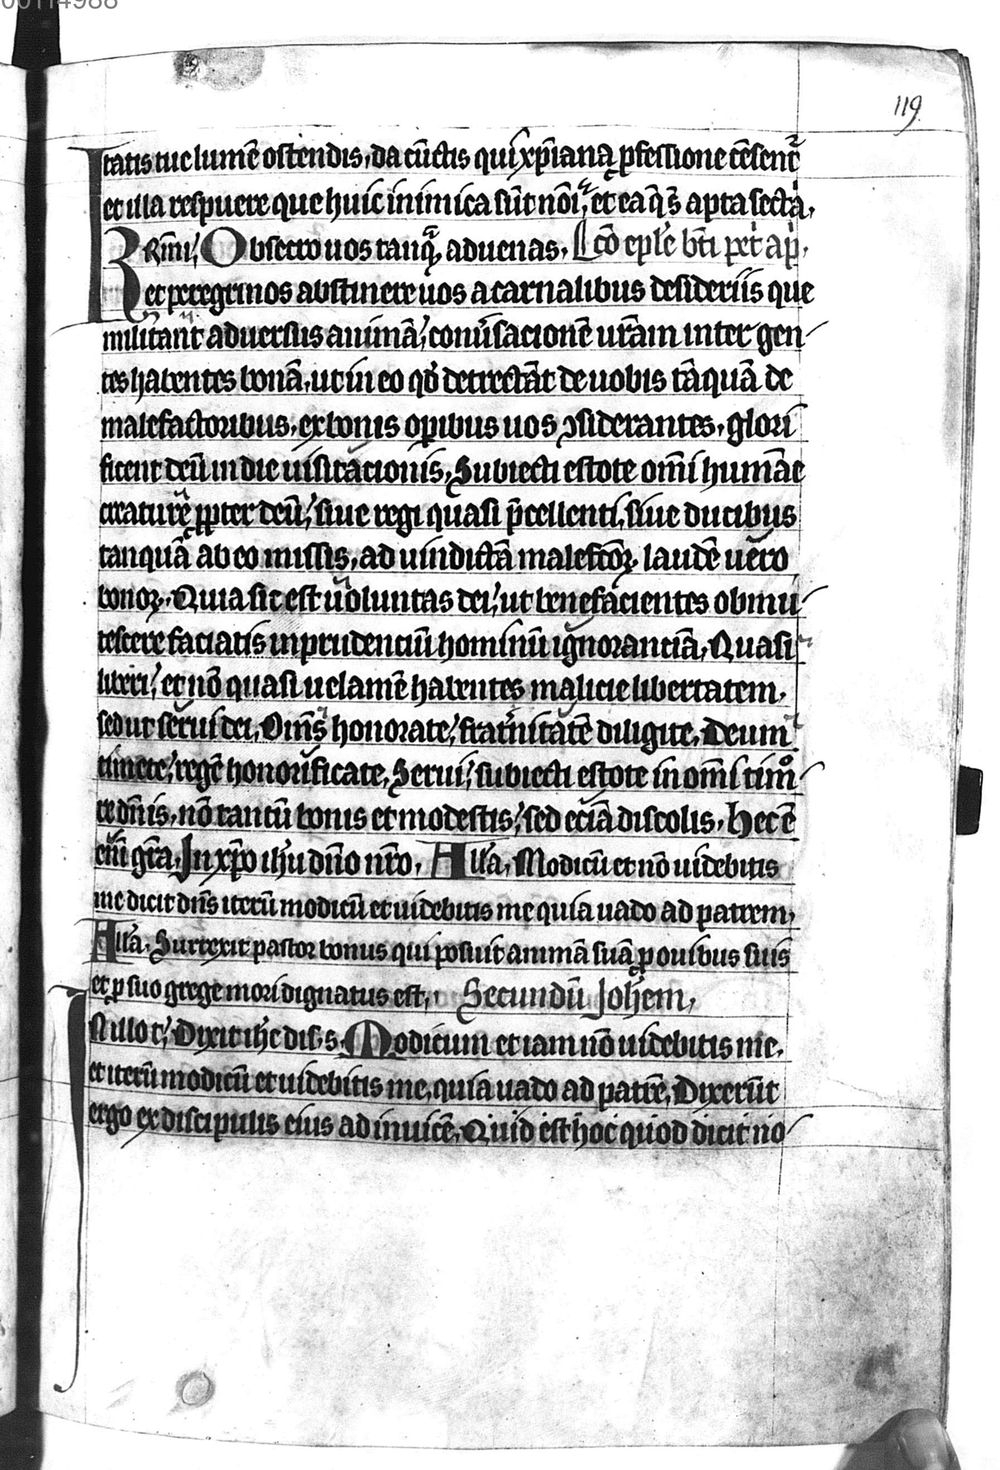 00114988
119
tatis tue lumē ostendis, da cūctis qui xp̄iana ꝓfessione cēsent᷑
et illa respuere que huic inimica sūt nōi, et ea q̄ sūt apta sectari,
Kr̄mi, Obsecro uos tanq̄ aduenas. Lc̄o ep̄le bt̄i pet᷑ ap̄.
et peregrinos abstinere uos a carnalibus desideriis que
militant aduersus animā, conūsacionē ur̄am inter gen
tes habentes bonā, ut in eo qd̄ detrectāt de uobis tāquā de
malefactoribus, ex bonis oꝑibus uos ꝯsiderantes, glori
ficent deū in die uisitacionis, Subiecti estote om̄i humāe
creature ꝓpter deū, siue regi quasi p̄cellenti, siue ducibus
tanquā ab eo missis, ad uindictā malefcōꝝ, laudē uero
bonoꝝ, Quia sic est uoluntas dei, ut benefacientes obmu
tescere faciatis inprudenciū hominū ignoranciā, Quasi
liberi, et nō quasi uelamē habentes malicie libertatem,
sed ut serui dei, Om̄s honorate, frat᷑nitatē diligite, Deum
timete, regē honorificate, Serui, subiecti estote in om̄i timo
re dn̄is, nō tantū bonis et modestis, sed eciā discolis, hec ē
eni gr̄a, In xp̄o ih̄u dn̄o nr̄o, All̄a, Modicū et nō uidebitis
me dicit dn̄s iterū modicū et uidebitis me quia uado ad patrem,
All̄a, Surrexit pastor bonus qui posuit animā suā ꝓ ouibus suis
et ꝓ suo grege mori dignatus est, Secundū Joh̄em,
In illo t̄, Dixit ih̄c dis. s. Modicum et iam nō uidebitis me,
et iterū modicū et uidebitis me, quia uado ad patrē, Dixerūt
ergo ex discipulis eius ad inuicē, Quid est hoc quod dicit no